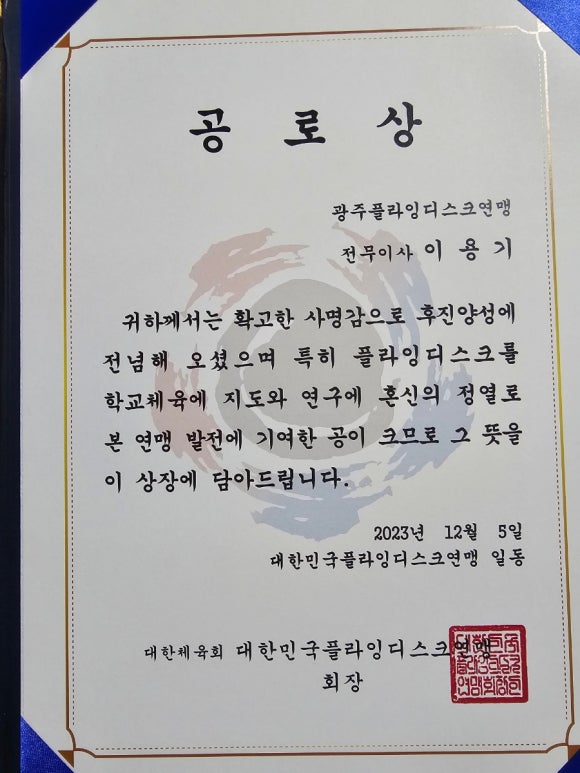 공 로 상
광주플라잉디스크연맹
전무이사 이 용 기
귀하께서는 확고한 사명감으로 후진양성에
전념해 오셨으며 특히 플라잉디스크를
학교체육에 지도와 연구에 혼신의 정열로
본 연맹 발전에 기여한 공이 크므로 그 뜻을
이 상장에 담아드립니다.
2023년 12월 5일
대한민국플라잉디스크연맹 일동
대한체육회 대한민국플라잉디스크연맹
회장